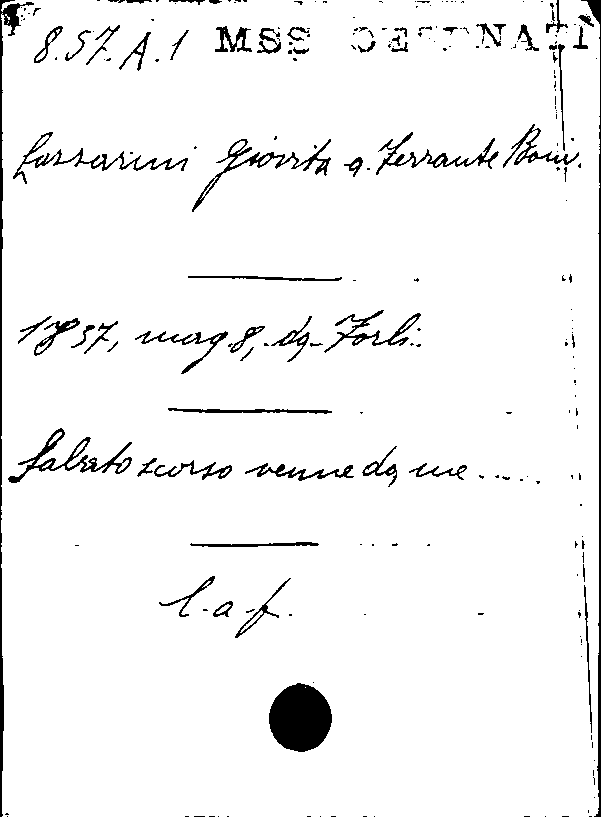 8.57.A.1 MSS CESENATI
Lazzarini Giovita a Ferrante Boni.
1837, mag. 8, da Forlì.
Sabato scorso venne da me.....
l. a f.